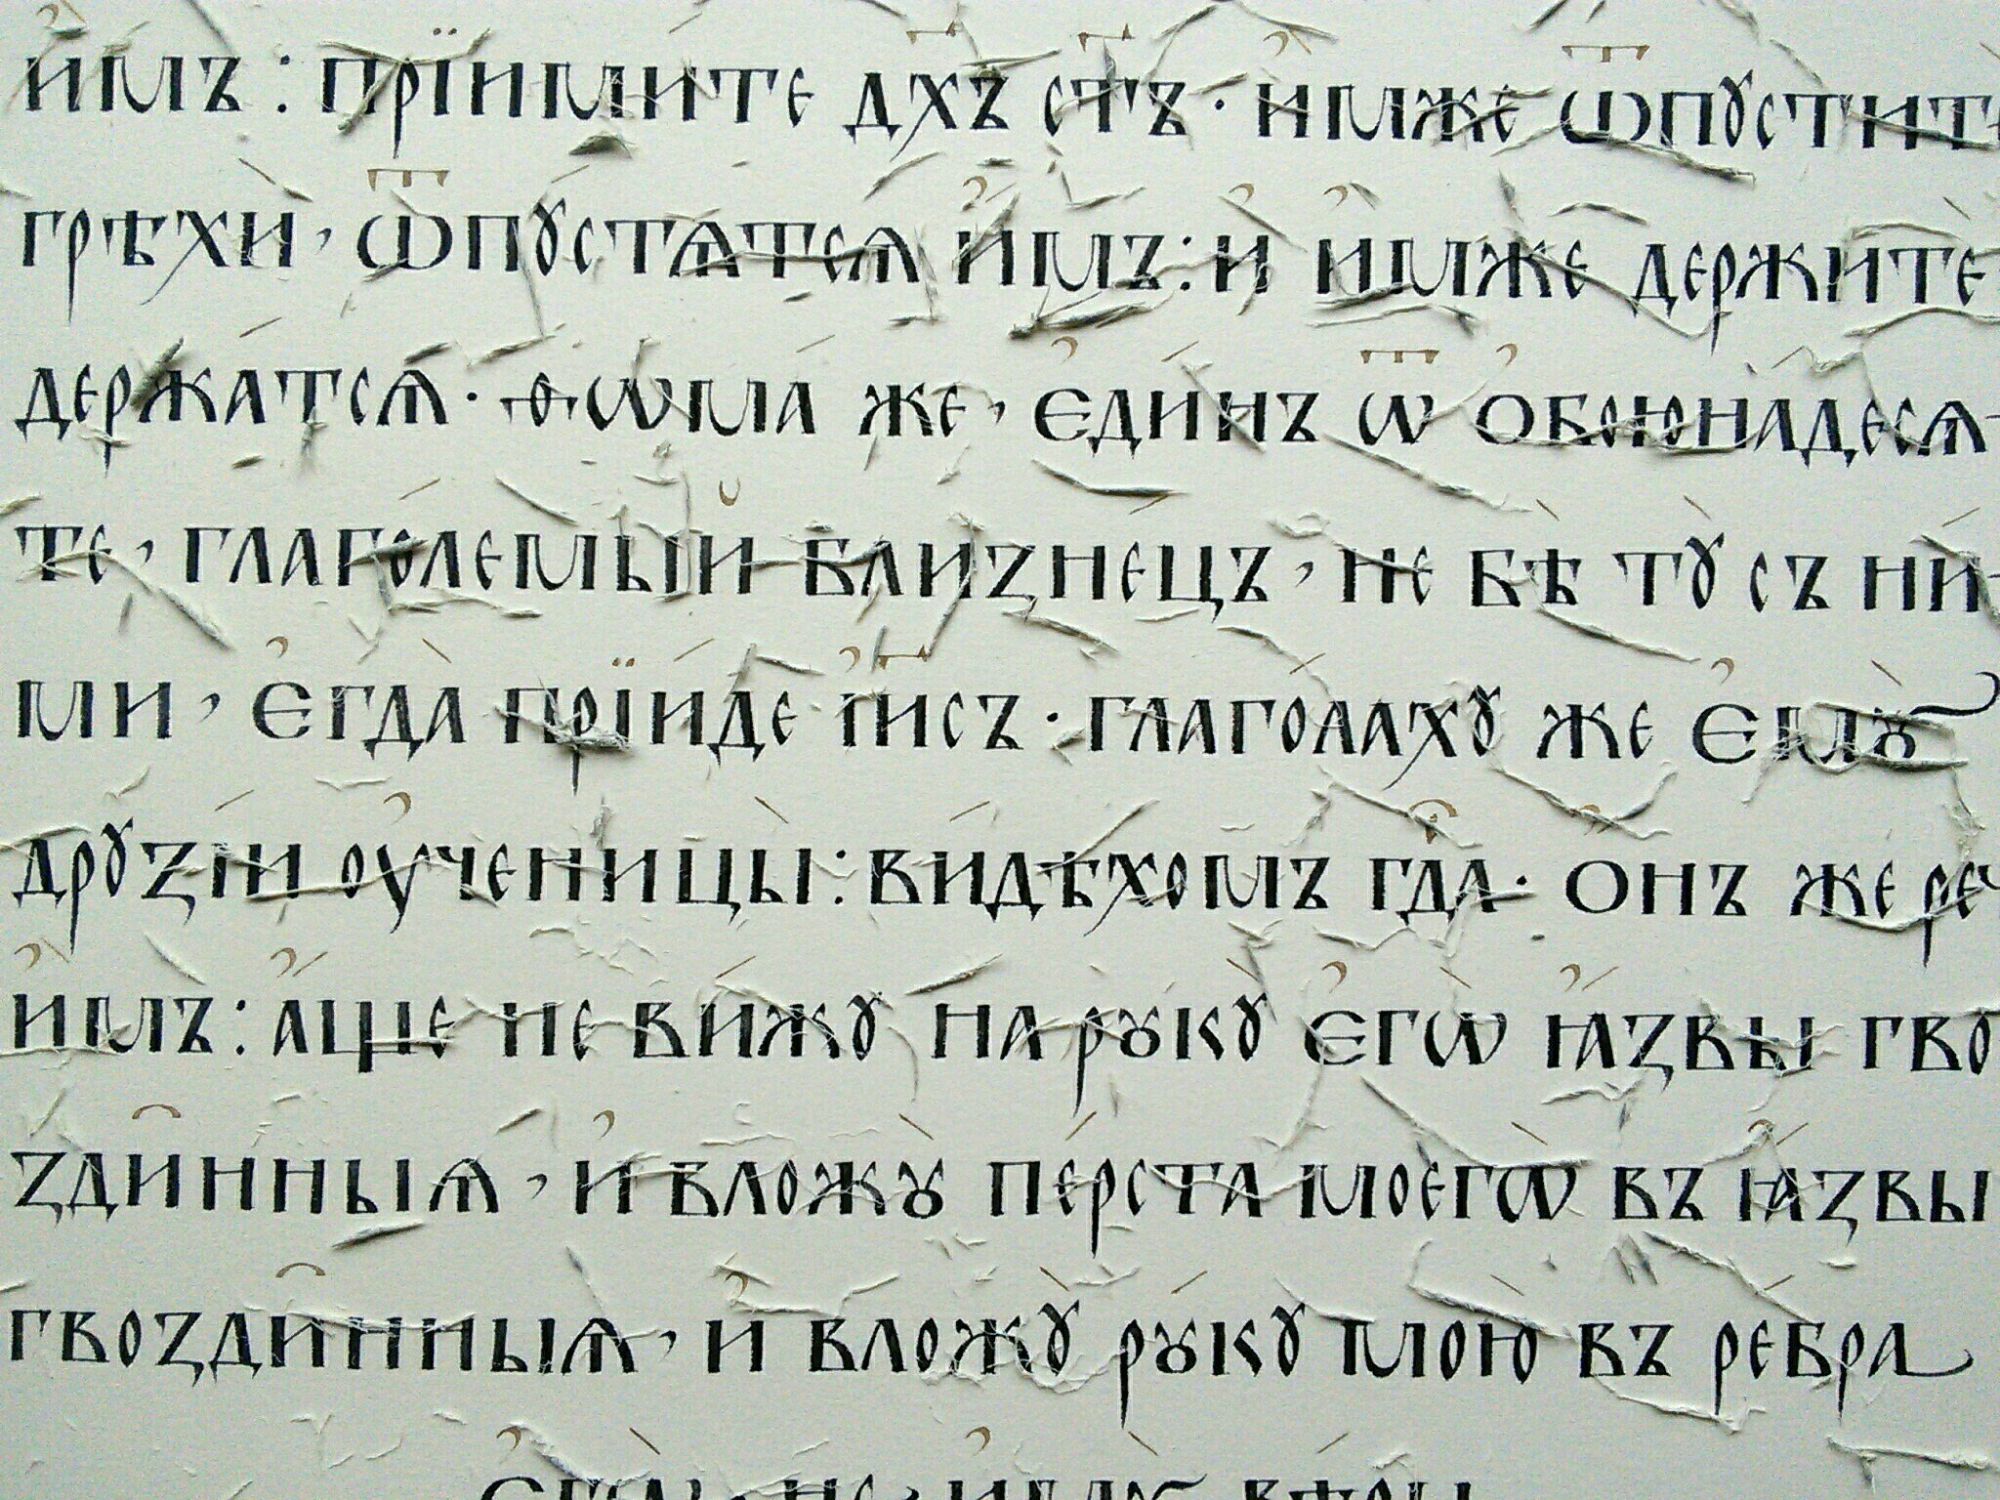 и҆̀мъ: прїими́те дх҃ъ ст҃ъ. и҆̀мже ѿпустите
грѣхѝ, ѿпустѧ́тсѧ и҆̀мъ: и҆ и҆̀мже держитѐ
держа́тсѧ. ѳѡма́ же, є҆ди́нъ ѿ ѻ҆боюна́десѧ
те, глаго́лемый близне́цъ, не бѣ̀ тꙋ̀ съ ни́
ми, є҆гда̀ прїи́де і҆и҃съ. глаго́лахꙋ же є҆мꙋ̀
дрꙋзі́и оу҆ченицы̀: ви́дѣхомъ гд҇а. ѻ҆́нъ же реч
и҆̀мъ: а҆́ще не ви́жꙋ на рꙋкꙋ̀ є҆гѡ̀ ꙗ҆́звы гво
зди̑нныѧ, и҆ вложꙋ̀ пе́рста моегѡ̀ въ ꙗ҆́звы
гвозди̑нныѧ, и҆ вложꙋ̀ рꙋ́кꙋ мою̀ въ ре́бра
є҆гѡ̀, не и҆мꙋ̀ вѣ́ры